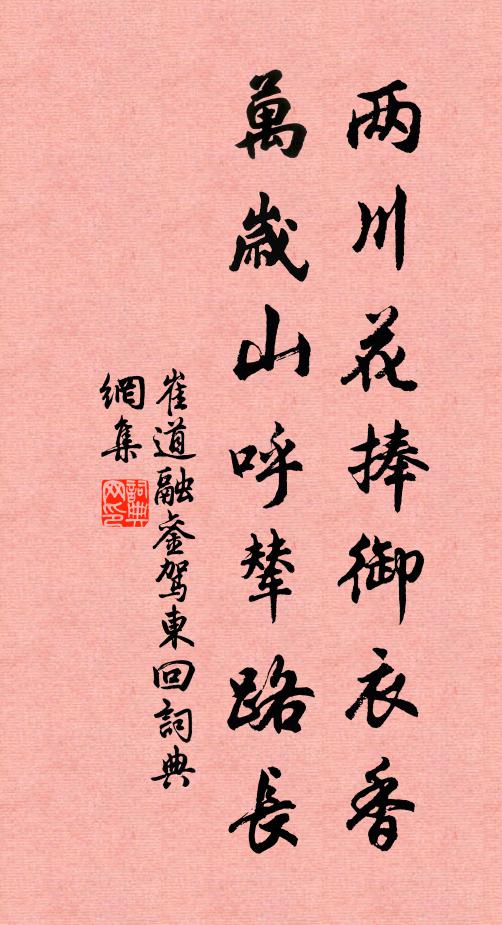 两川花捧御衣香
萬歲山呼輦路長
崔道融銮駕東回詞典
網集
詞典
网印